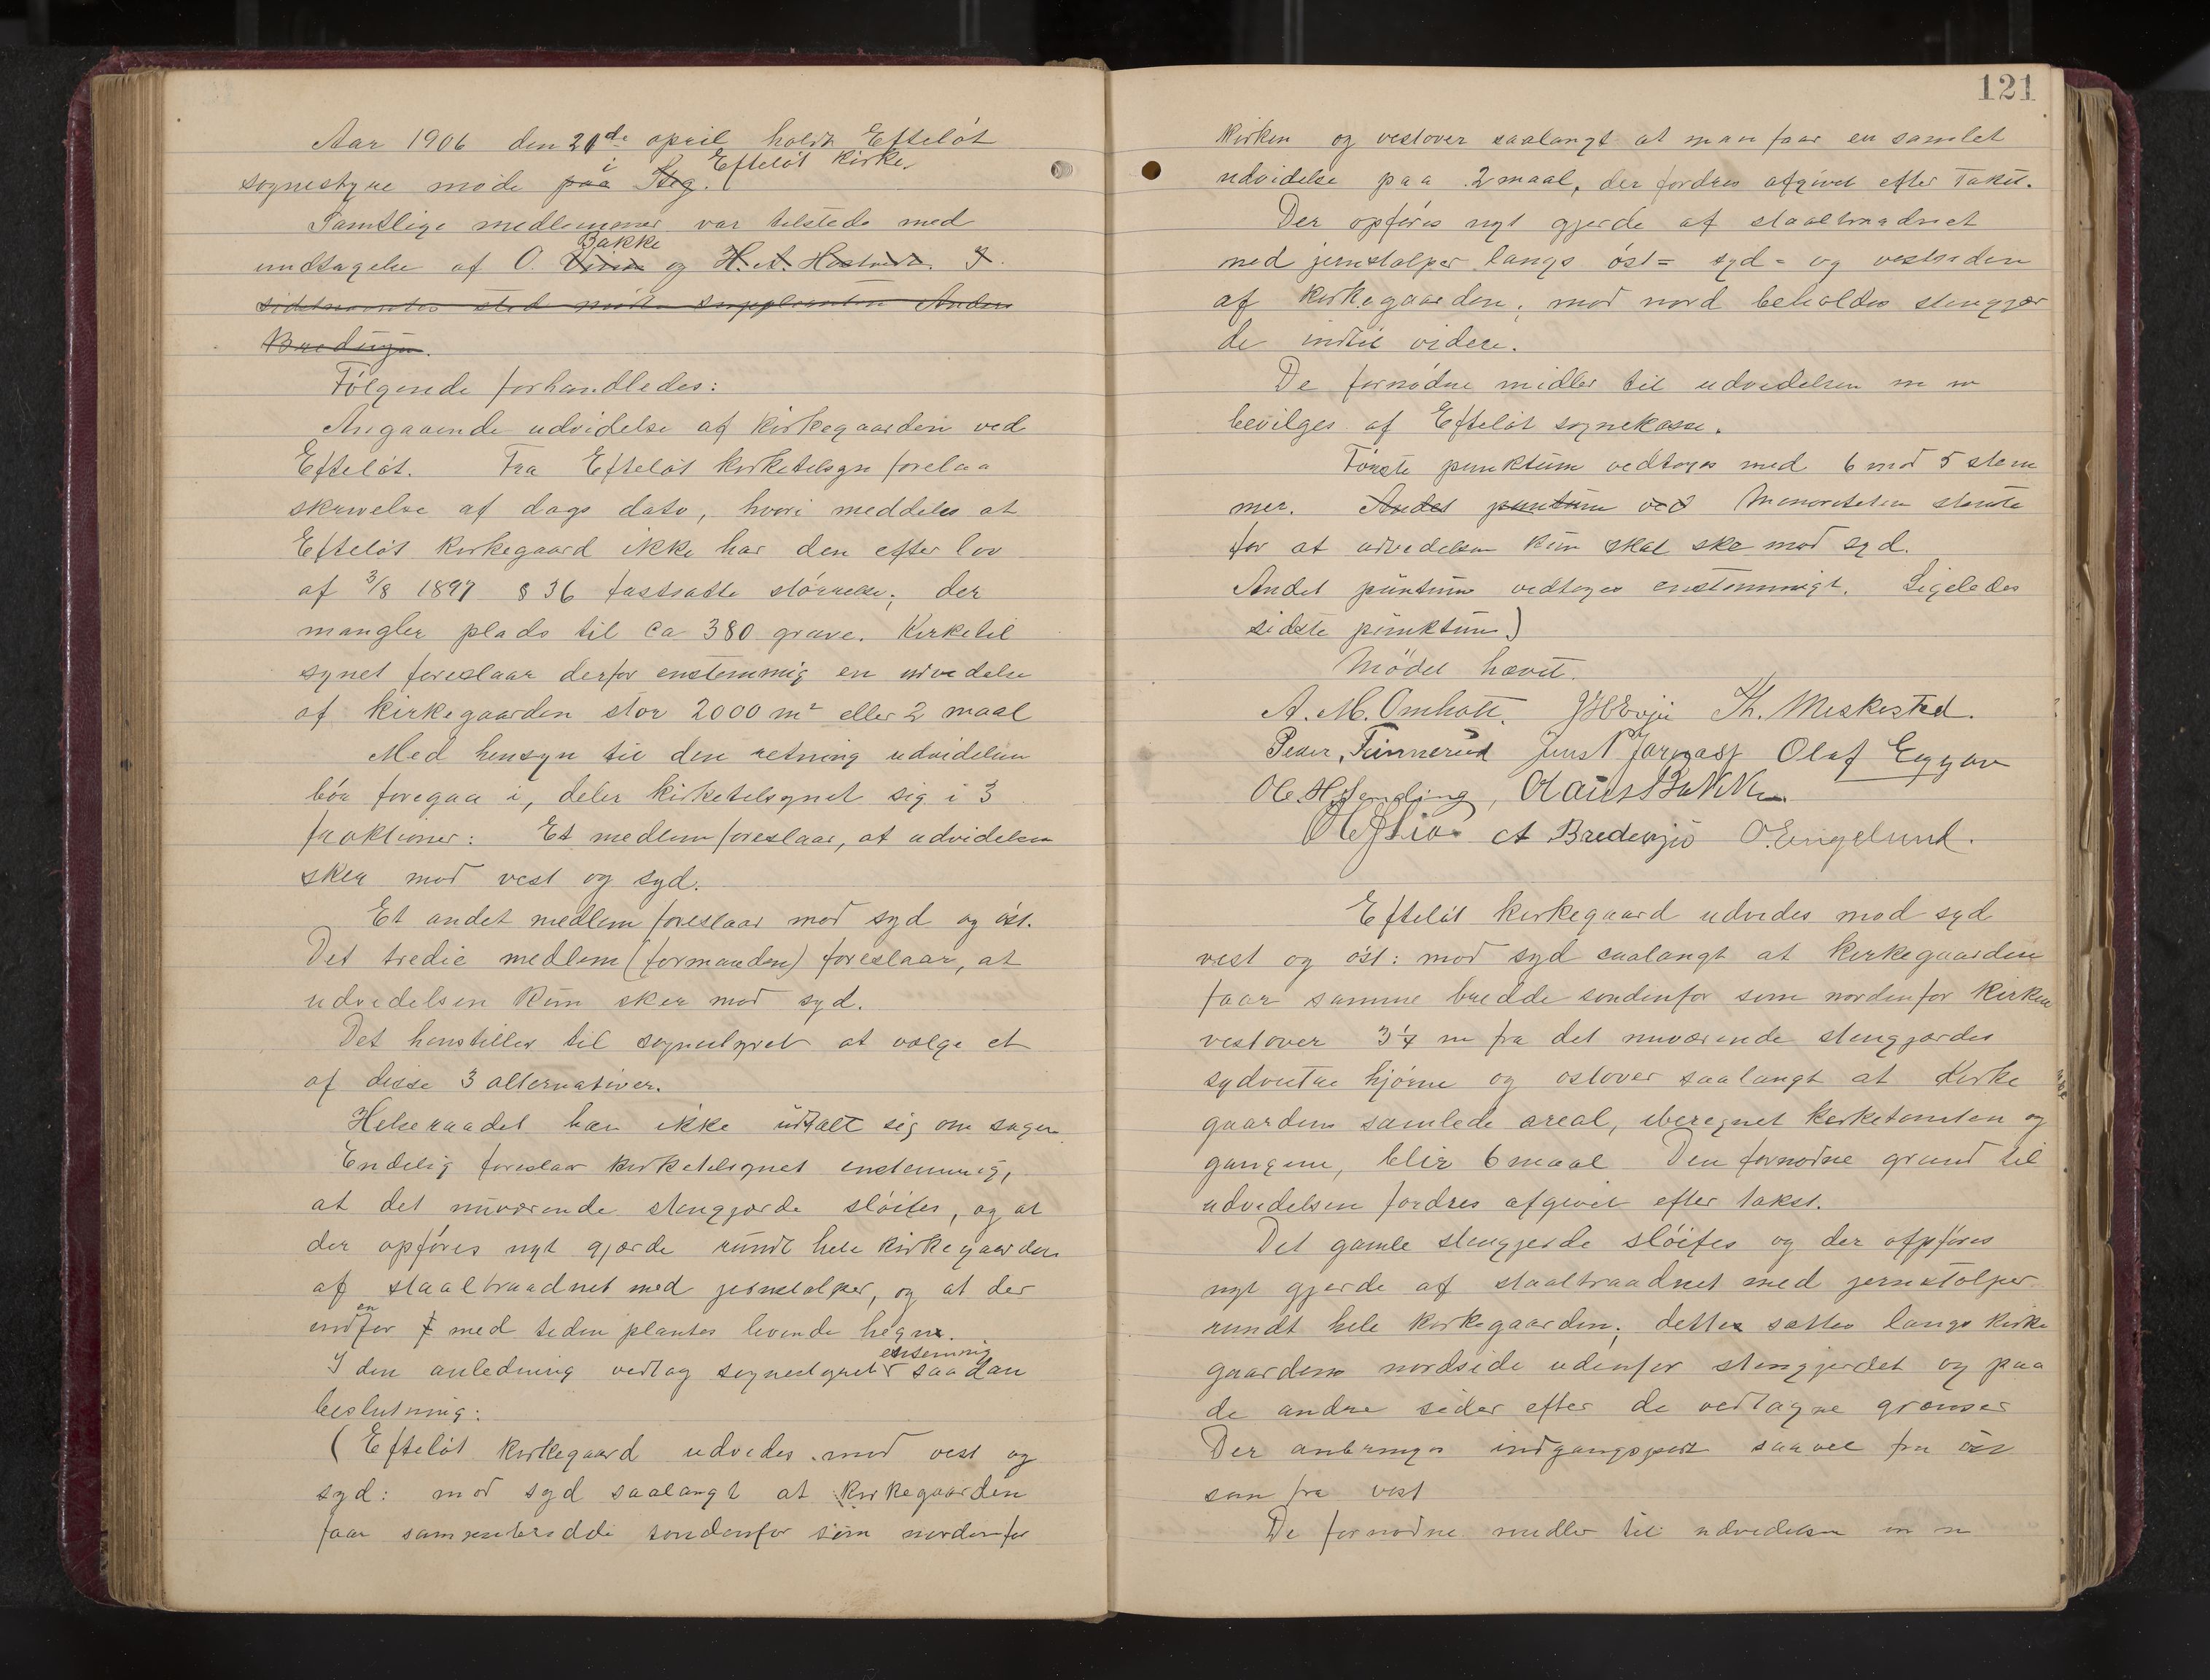 Aar 1906 den 21de april holdt Efteløt
sognestyre møde paa i Steg. Efteløt kirke.
Samtlige medlemmer var tilstede med
undtagelse af O. Bakke og H. A. I
sidstnævntes sted mødte suppleanten Anders
Følgende forhandledes:
Angaaende udvidelse af kirkegaarden ved
Efteløt. Fra Efteløt kirketilsyn forelaa
skrivelse af dags dato, hvori meddeles at
Efteløt kirkegaard ikke har den efter lov
af 3/8 1897 § 36 fastsatte størrelse; der
mangler plads til ca 380 grave. Kirketil
synet foreslaar derfor enstemmig en udvidelse
af kirkegaarden stor 2000 m² eller 2 maal
Med hensyn til den retning udvidelsen
bør foregaa i, deler kirketilsynet sig i 3
fraktioner: Et medlem foreslaar, at udvidelsen
sker mod vest og syd.
Et andet medlem foreslaar mod syd og øst.
Det tredie medlem (formanden) foreslaar, at
udvidelsen kun sker mod syd.
Det henstilles til sognestyret at vælge et
af disse 3 alternativer.
Helseraadet har ikke udtalt sig om sagen
Endelig foreslaar kirketilsynet enstemmig,
at det nuværende stengjærde sløifes, og at
der opføres nyt gjærde rundt hele kirkegaarden
af staaltraadnet med jernstolper, og at der
indenfor med tiden plantes levende hegn.
I den anledning vedtog sognestyret enstemmig saadan
beslutning:
(Efteløt kirkegaard udvides mod vest og
syd: mod syd saalangt at kirkegaarden
faar samme bredde søndenfor som nordenfor
121
kirken og vestover saalangt at man faar en samlet
udvidelse paa 2 maal, der fordres afgivet efter takst.
Der opføres nyt gjerde af staaltraadnet
med jernstolper langs øst= syd= og vestsiden
af kirkegaarden; mod nord beholdes stengjær
de indtil videre.
De fornødne midler til udvidelsen m m
bevilges af Efteløt sognekasse.
Første punktum vedtoges med 6 mod 5 stem
mer. Andet puntum ved Minoriteten stemte
for at udvidelsen kun skal ske mod syd.
Andet puntum vedtoges enstemmigt. Ligeledes
sidste punktum)
Mødet hævet.
A. M. Omholt. Th. Meskestad.
Peder Tinnerud Olaf
Ole H Sending, Olaus Bakke
A Bredesjø O. Engelund.
Efteløt kirkegaard udvides mod syd
vest og øst: mod syd saalangt at kirkegaarden
faar samme bredde søndenfor som nordenfor kirken
vestover 3¼ m fra det nuværende stengjærdes
sydvestre hjørne og østover saalangt at kirke
gaardens samlede areal, iberegnet kirketomten og
gangene, blir 6 maal Den fornødne grund til
udvidelsen fordres afgivet efter takst.
Det gamle stengjerde sløifes og der opføres
nyt gjerde af staaltraadnet med jernstolper
rundt hele kirkegaarden; dette sættes langs kirke
gaardens nordside udenfor stengjerdet og paa
de andre sider efter de vedtagne grænser
Der anbringes indgangsport saavel fra øst
som fra vest
De fornødne midler til udvidelsen m m